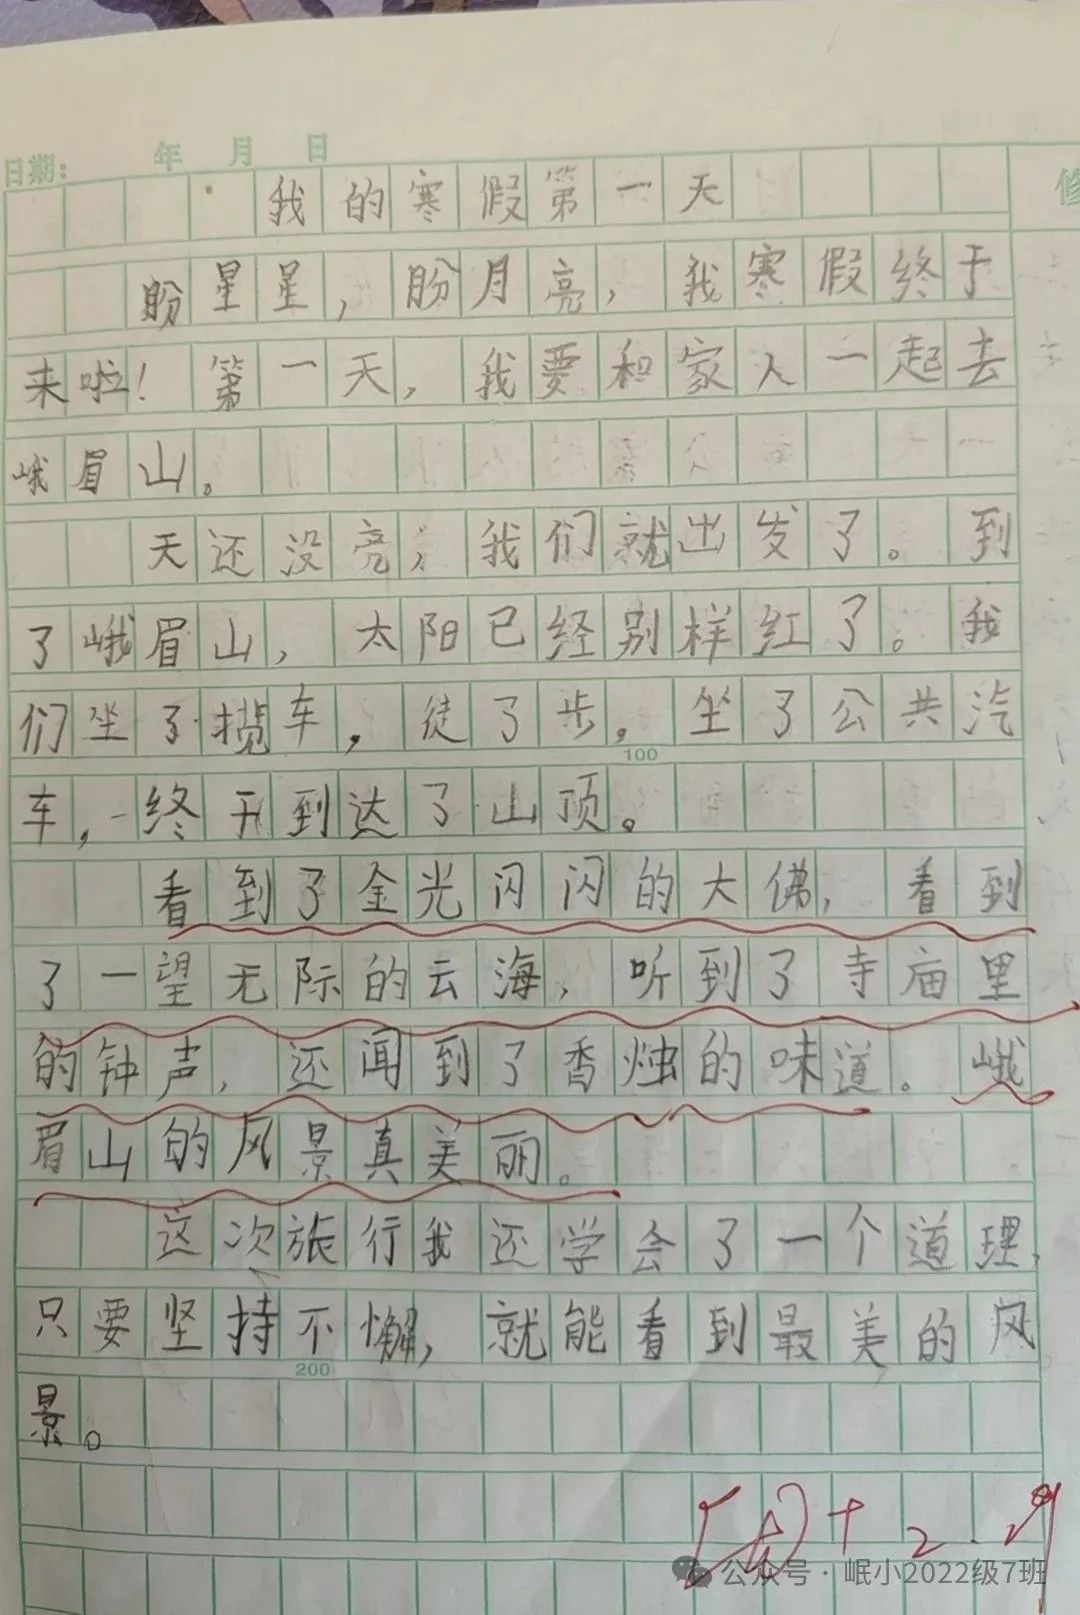 日期： 年 月 日
修
我的寒假第一天
盼星星，盼月亮，我寒假终于
来啦！第一天，我要和家人一起去
峨眉山。
天还没亮，我们就出发了。到
了峨眉山，太阳已经别样红了。我
们坐了揽车，徒了步，坐了公共汽
100
车，终于到达了山顶。
看到了金光闪闪的大佛，看到
了一望无际的云海，听到了寺庙里
的钟声，还闻到了香烛的味道。峨
眉山的风景真美丽。
这次旅行我还学会了一个道理，
只要坚持不懈，就能看到最美的风
200
景。
公众号·岷小2022级7班